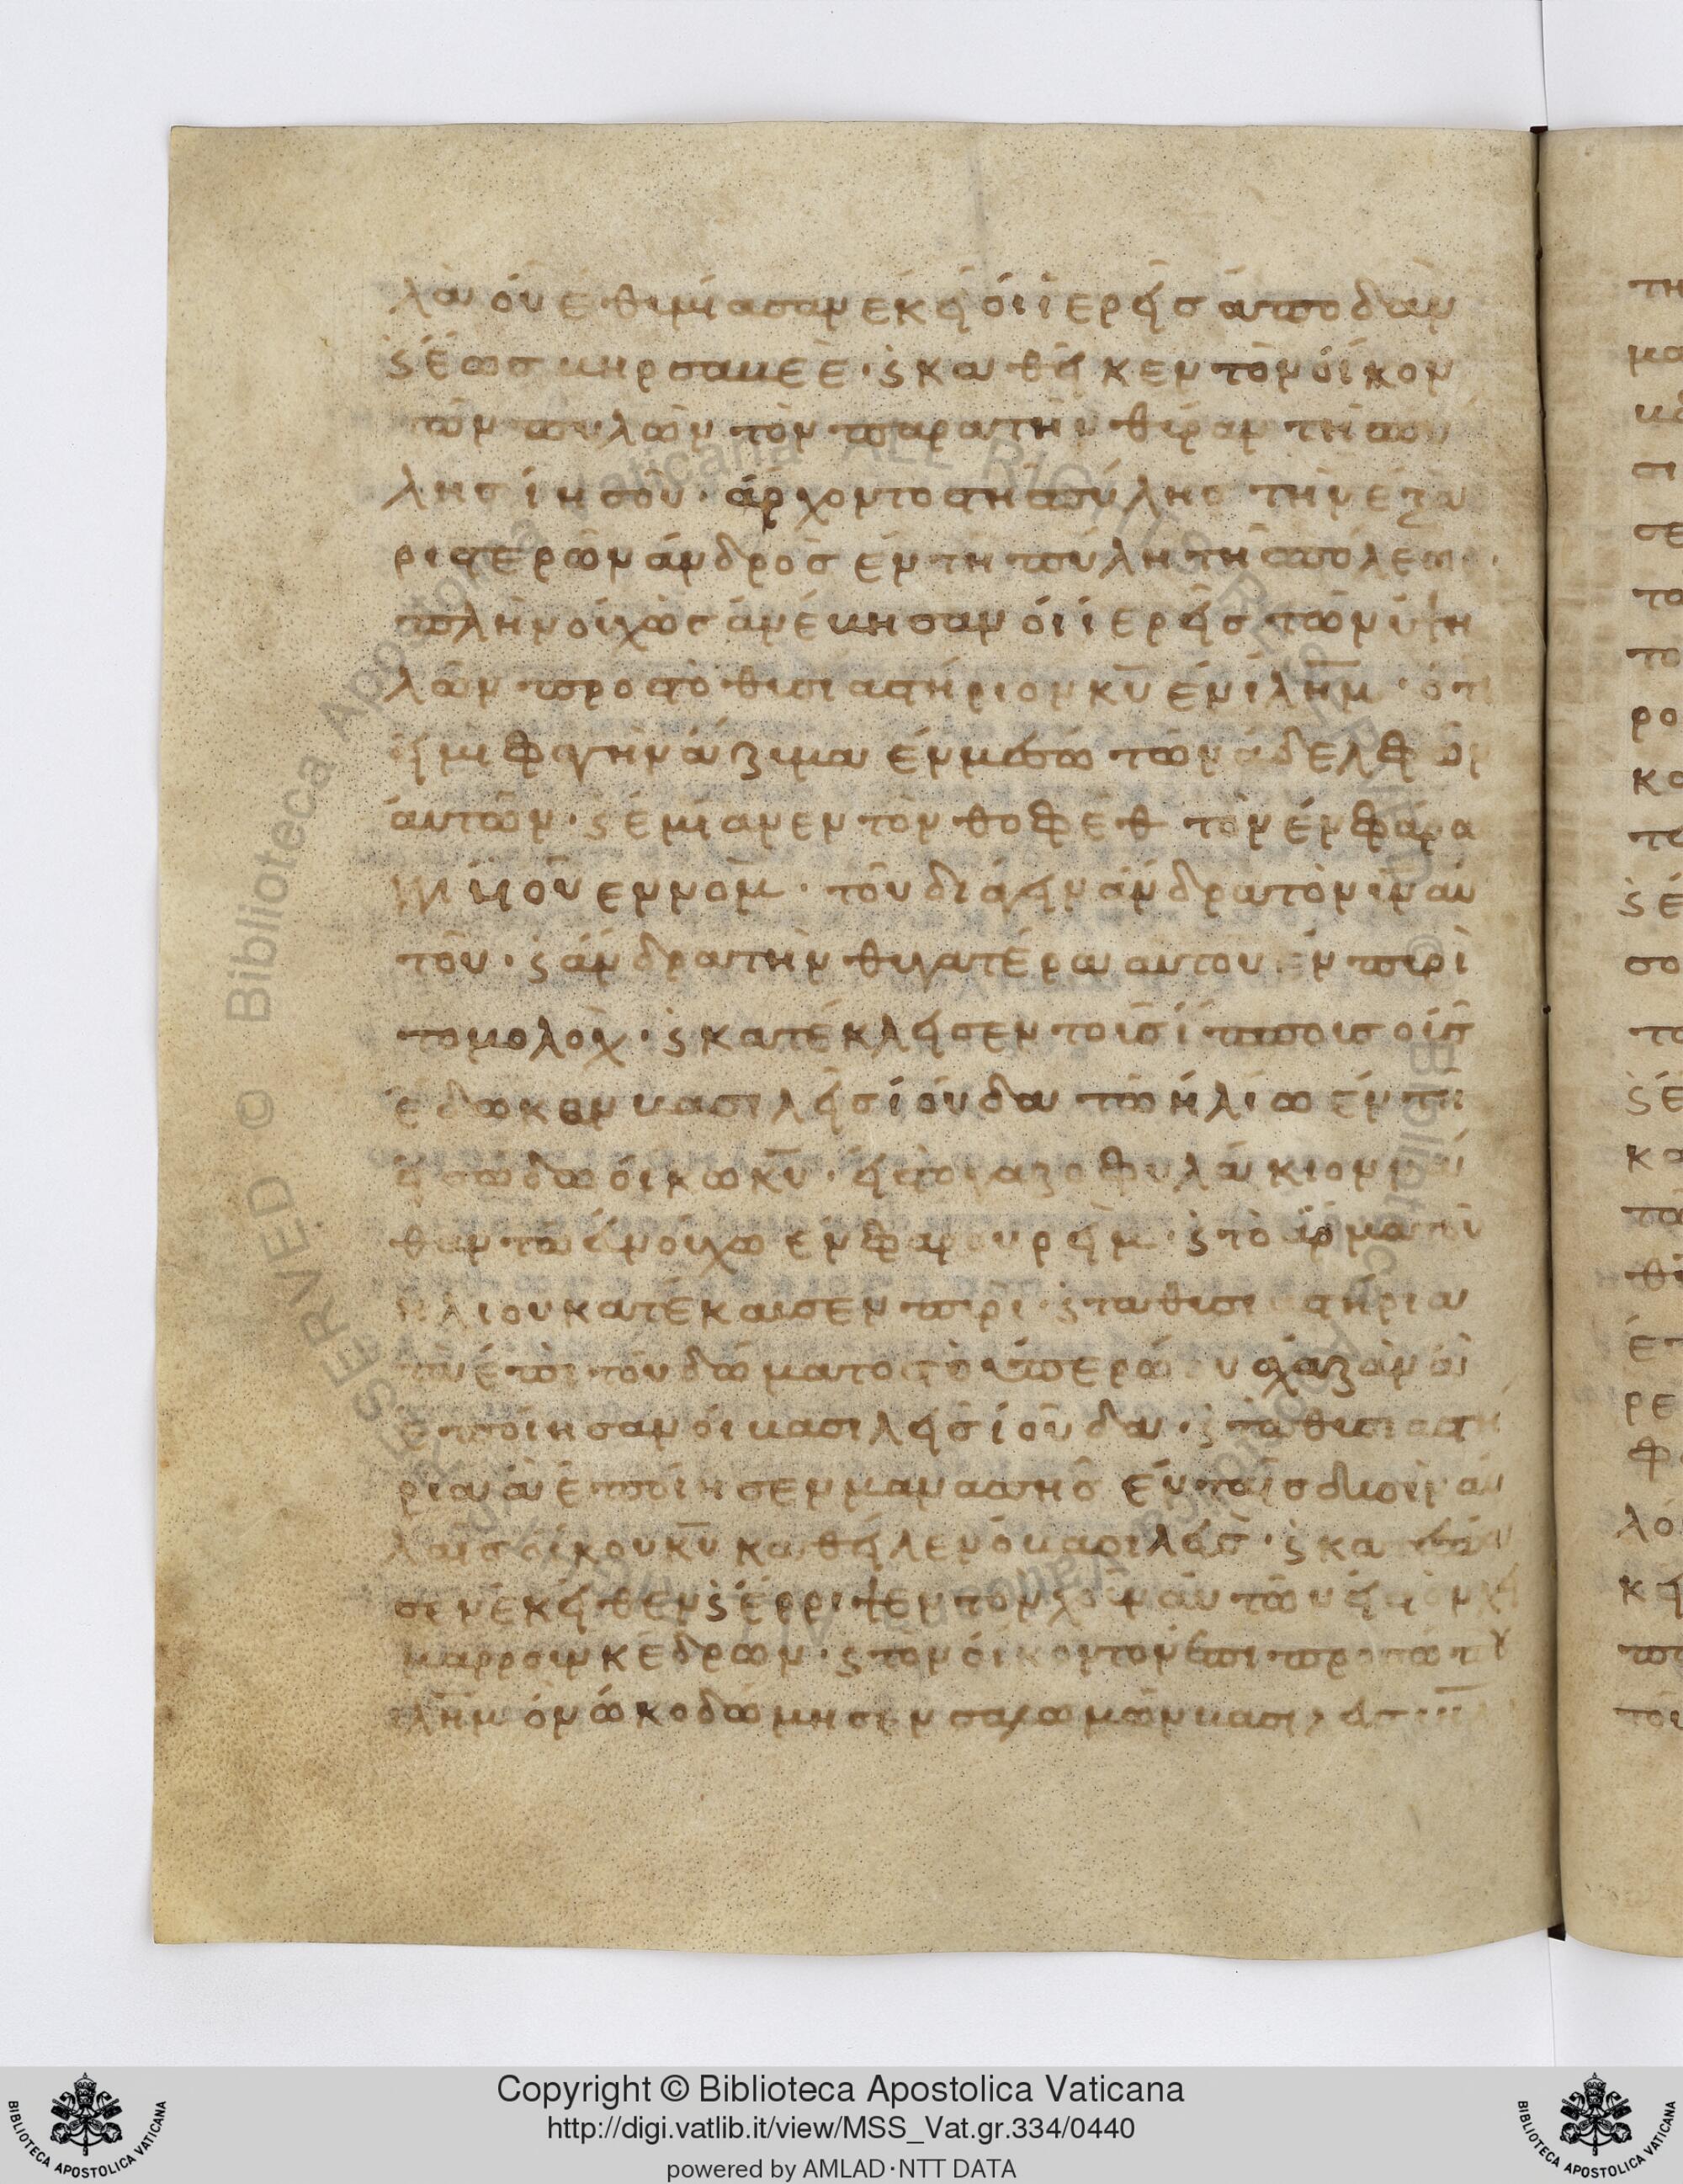 λὰ οὗ ἐθυμίασαν ἐκεῖ οἱ ἱερεῖς ἀπὸ δὰν
ϛ ἕως βηρσαβεὲ · ϛ καθεῖκεν τὸν οἶκον
τῶν πυλῶν τὸν παρὰ τὴν θύραν τῆς πύ
λης ἰησοῦ · ἄρχοντος τῆς πύλης τὴν ἐξ ἀ
ριστερῶν ἀνδρὸς ἐν τῇ πύλῃ τῆς πόλεως ·
πλὴν οὐχ ὡς ἀνέβησαν οἱ ἱερεῖς τῶν ὑψη
λῶν πρὸς τὸ θυσιαστήριον κυ ἐν ιλημ · ὅτι
εἰ μὴ φαγεῖν ἄζυμα ἐν μέσω τῶν ἀδελφῶν
αὐτῶν · ϛ ἐμίανεν τὸν θοφὲθ τὸν ἐν φάρα
γγι υἱοῦ ἐννὸμ · τοῦ διάγειν ἄνδρα τὸν υἱὸν αὐ
τοῦ · ϛ ἄνδρα τὴν θυγατέρα αὐτοῦ ἐν πυρὶ
τῶ μολὸχ · ϛ κατέκλεισεν τοὺς ἵππους οὓς
ἔδωκεν βασιλεῖς ἰούδα τῶ ἡλίω ἐν τῇ
εἰσόδω οἴκω κυ · εἰς τὸ γαζοφυλάκιον νά
θαν τῶ εὐνούχω ἐν φαρουρεὶμ · ϛ τὸ ἅρμα τοῦ
ἡλίου κατέκαυσεν πυρί · ϛ τὰ θυσιαστήρια
τὰ ἐπὶ τοῦ δώματος τὸ ὑπερώου ἀχαζὰν ἃ
ἐποίησαν οἱ βασιλεῖς ἰούδα · ϛ τὰ θυσιαστή
ρια ἃ ἐποίησεν μανασσῆς ἐν ταῖς δυσὶν αὐ
λαῖς οἴκου κυ καθεῖλεν ὁ βασιλεὺς · ϛ κατέσπα
σεν ἐκεῖθεν ϛ ἔρριψεν τὸν χοῦν αὐτῶν εἰς τὸν χεί
μαρρουν κέδρων · ϛ τὸν οἶκον τὸν ἐπὶ προσώπου
ιλημ ὃν ὠκοδόμησεν σαλωμὼν βασιλεὺς